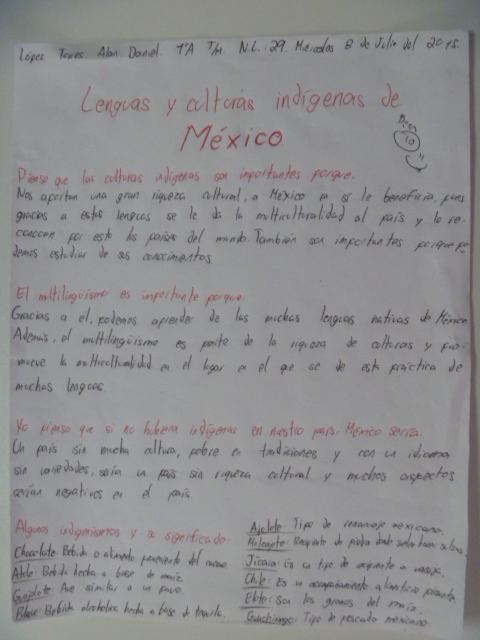 López Torres Alan Daniel. 1°A T/M. N.L.:29. Miércoles 8 de Julio del 2015.
Lenguas y culturas indígenas de
México
10
Pienso que las culturas indígenas son importantes porque.
Nos aportan una gran riqueza cultural, a México en sí le beneficia, pues
gracias a estas lenguas se le da la multiculturalidad al país y lo re-
conocen por esto los países del mundo. También son importantes porque po-
demos estudiar de sus conocimientos
El multilingüismo es importante porque
Gracias a el, podemos aprender de las muchas lenguas nativas de México
Además, el multilingüismo es parte de la riqueza de culturas y pro-
mueve la multiculturalidad en el lugar en el que se de esta práctica de
muchas lenguas
Yo pienso que si no hubiera indígenas en nuestro país: México sería.
Un país sin mucha cultura, pobre en tradiciones y con un idioma
sin variedades, sería un país sin riqueza cultural y muchos aspectos
serían negativos en el país
Algunos indigenismos y su significado:
Chocolate: Bebida o alimento proveniente del cacao
Atole: Bebida hecha a base de maíz.
Guajolote: Ave similar a un pavo.
Pulque: Bebida alcoholica hecha a base de
Ajolote: Tipo de mexicano.
Molcajete: Recipiente de piedra donde suelen hacer salsa.
Jícara: Es un tipo de recipiente o vasija.
Chile: Es un acompañamiento alimenticio picante.
Elote: Son los granos del maíz.
Guachinango: Tipo de pescado mexicano.